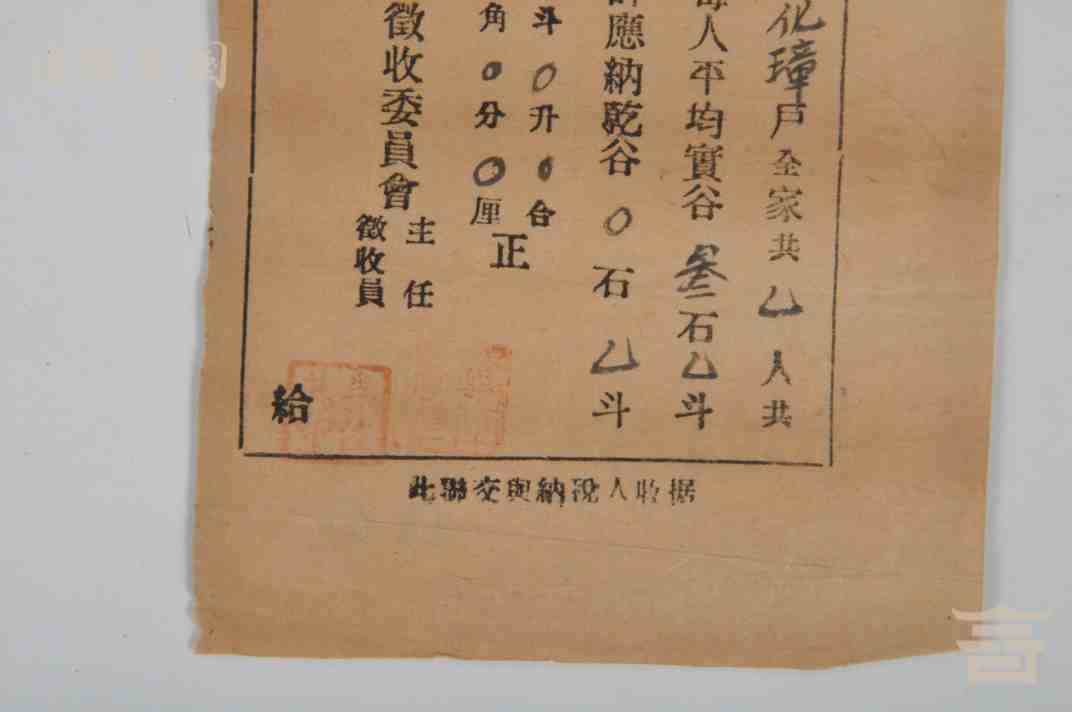 化璋戶全家共乙人共
每人平均實谷叁石乙斗
計應納乾谷〇石乙斗
斗〇升〇合
角〇分〇厘
正
徵收委員會
主任
徵收員
給
此聯交與納稅人收据